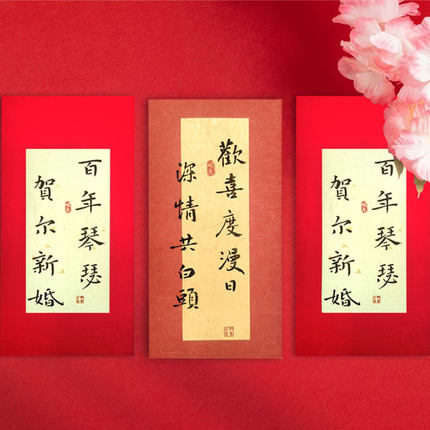 百年琴瑟
賀尔新婚
歡喜度漫日
深情共白頭
百年琴瑟
賀尔新婚